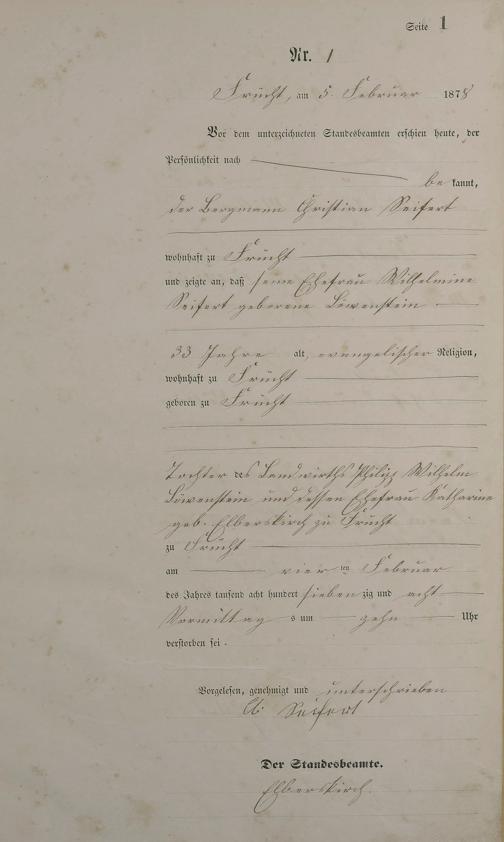 Seite 1
Nr. 1
Frücht, am 5. Februar 1878
Vor dem unterzeichneten Standesbeamten erschien heute, der
Persönlichkeit nach
be kannt,
der Bergmann Christian Seifert
wohnhaft zu Frücht
und zeigte an, daß seine Ehefrau Wilhelmine
Seifert geborene Löwenstein
33 Jahre alt, evangelischer Religion,
wohnhaft zu Frücht
geboren zu Frücht
Tochter des Landwirths Philipp Wilhelm
Löwenstein und dessen Ehefrau Katharine
geb. Elberskirch zu Frücht
zu Frücht
am vier ten Februar
des Jahres tausend acht hundert sieben zig und acht
Vormittag s um zehn Uhr
verstorben sei.
Vorgelesen, genehmigt und unterschrieben
Ch. Seifert
Der Standesbeamte.
Elberskirch.